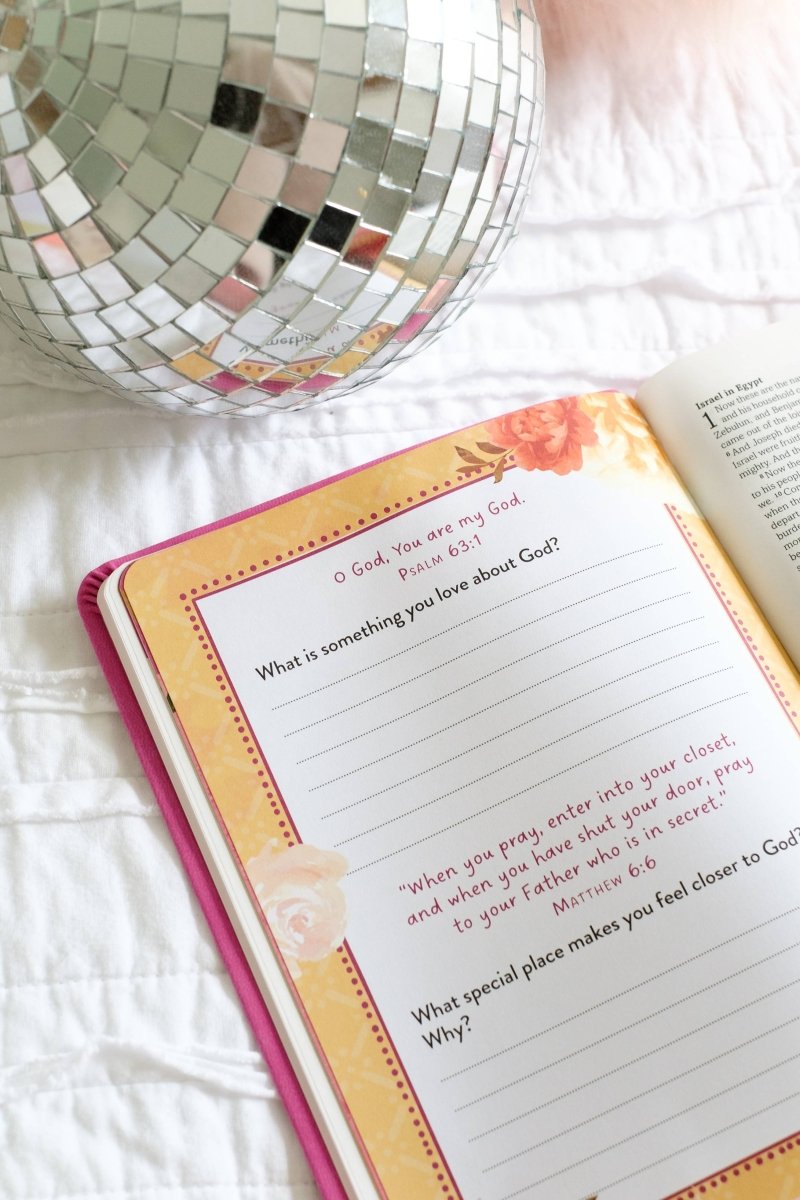 O God, You are my God.
Psalm 63:1
What is something you love about God?
"When you pray, enter into your closet,
and when you have shut your door, pray
to your Father who is in secret."
Matthew 6:6
What special place makes you feel closer to God?
Why?
Israel in Egypt
1 Now these are the
and his household
Zebulun, and
came out of the
6 And Joseph died
Israel were
mighty. And
8 Now
to his
we. 10
when
depart